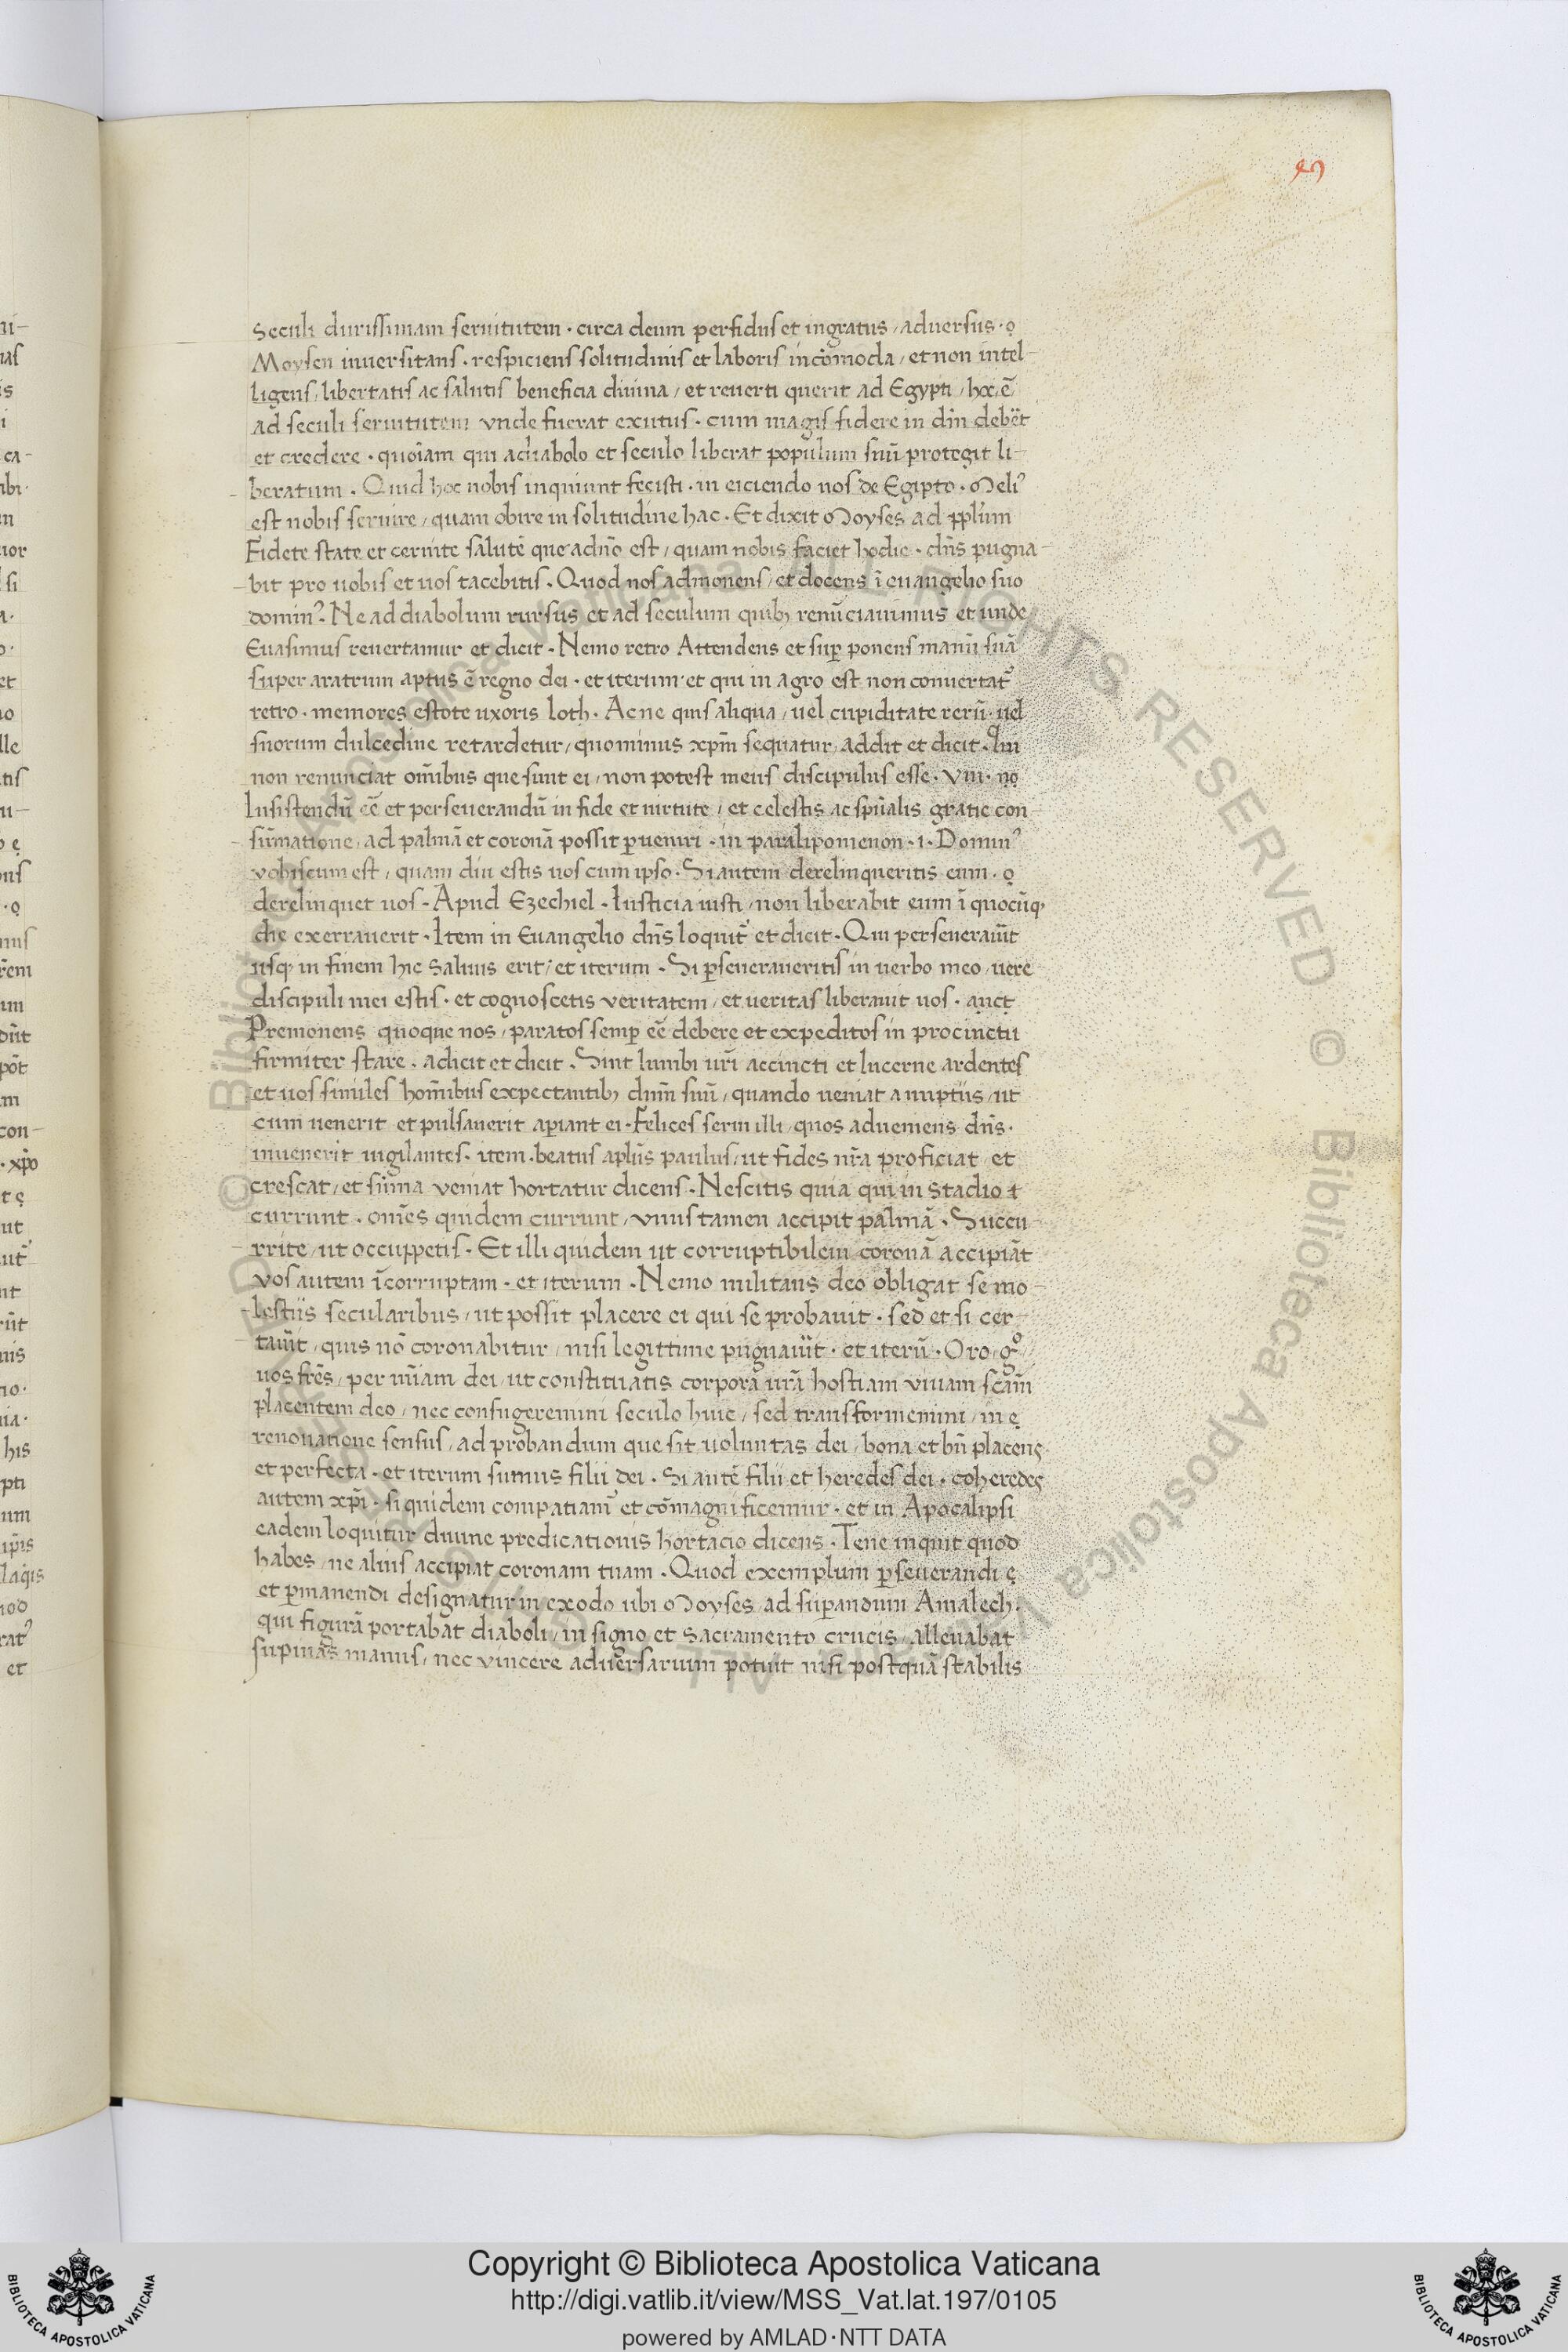 seculi durissimam seruitutem · circa deum perfidus et ingratus / aduersus · o
Moysen inuersitans · respiciens solitudinis et laboris incōmoda / et non intel-
ligens / libertatis ac salutis beneficia diuina / et reuerti querit ad Egypti / hoc ē
ad seculi seruitutem vnde fuerat exutus · cum magis fidere in dm̄ deb̄et
et credere · quoīam qui a diabolo et seculo liberat populum suū protegit li-
beratum · Quid hoc nobis inquiunt fecisti · in eiciendo nos de Egipto · Meliꝰ
est nobis seruire / quam obire in solitudine hac · Et dixit Moyses ad pplūm
Fidete state et cernite salutē que a dn̄o est / quam nobis faciet hodie · dn̄s pugna-
bit pro uobis et uos tacebitis · Quod nos admonens / et docens ī euangelio suo
dominꝰ · Ne ad diabolum rursus et ad seculum quibꝫ renūciauimus et unde
Euasimus reuertamur et dicit · Nemo retro Attendens et suꝑ ponens manū suā
super aratrum aptus ē regno dei · et iterum · et qui in agro est non conuertat᷑
retro · memores estote uxoris loth · Ac ne quis aliqua / uel cupiditate rerū · uel
suorum dulcedine retardetur / quominus xp̄m sequatur / addit et dicit · Qui
non renunciat om̄ibus que sunt ei / non potest meus discipulus esse · VIII · no
Insistendū eē et perseuerandū in fide et uirtute / et celestis ac spūalis gratie con-
sūmatione / ad palmā et coronā possit ꝑueniri · in paralipomenon · i · Dominꝰ
vobiscum est / quam diu estis uos cum ipso · Si autem derelinqueritis eum · o
derelinquet uos · Apud Ezechiel · Iusticia iusti / non liberabit eum ī quocūqꝫ
die exerrauerit · Item in Euangelio dn̄s loquit᷑ et dicit · Qui perseuerauīt
usqꝫ in finem hic saluus erit · et iterum · Si ꝑseueraueritis in uerbo meo / uere
discipuli mei estis · et cognoscetis veritatem / et ueritas liberauit uos ·
Premonens quoque nos / paratos semꝑ eē debere et expeditos in procinctu
firmiter stare · adicit et dicit · Sint lumbi ur̄i accincti et lucerne ardentes
et uos similes hom̄ibus expectantibꝫ dnm̄ suū / quando ueniat a nuptiis / ut
cum uenerit et pulsauerit aꝑiant ei · Felices serui illi / quos adueniens dn̄s ·
inuenerit uigilantes · item · beatus aplūs paulus / ut fides nr̄a proficiat / et
crescat / et sūma veniat hortatur dicens · Nescitis quia qui in stadio
currunt · om̄es quidem currunt / vnus tamen accipit palmā · Sic cu-
rrite / ut occuppetis · Et illi quidem ut corruptibilem coronā accipiāt
vos autem īcorruptam · et iterum · Nemo militans deo obligat se mo-
lestiis secularibus / ut possit placere ei qui se probauit · sed et si cer-
tauīt / quis nō coronabitur / nisi legittime pugnauīt · et iterū · Oro gͦ
uos fr̄es / per mīam dei / ut constituatis corpora ur̄a hostiam viuam scām
placentem deo / nec confugeremini seculo huic / sed transformemini / in e
renouatione sensus / ad probandum que sit uoluntas dei / bona et bn̄ placens
et perfecta · et iterum sumus filii dei · Si autē filii et heredes dei · coheredes
autem xp̄i · si quidem compatiam᷑ et cōmagnificemur · et in Apocalipsi
eadem loquitur diuine predicationis hortacio dicens · Tene inquit quod
habes / ne alius accipiat coronam tuam · Quod exemplum ꝑseuerandi e
et ꝑmanendi designatur in exodo ubi Moyses / ad suꝑandum Amalech ·
qui figurā portabat diaboli / in signo et sacramento crucis / alleuabat
supinas manus / nec vincere aduersarium potuit nisi postquā stabilis
Copyright © Biblioteca Apostolica Vaticana
http://digi.vatlib.it/view/MSS_Vat.lat.197/0105
powered by AMLAD·NTT DATA